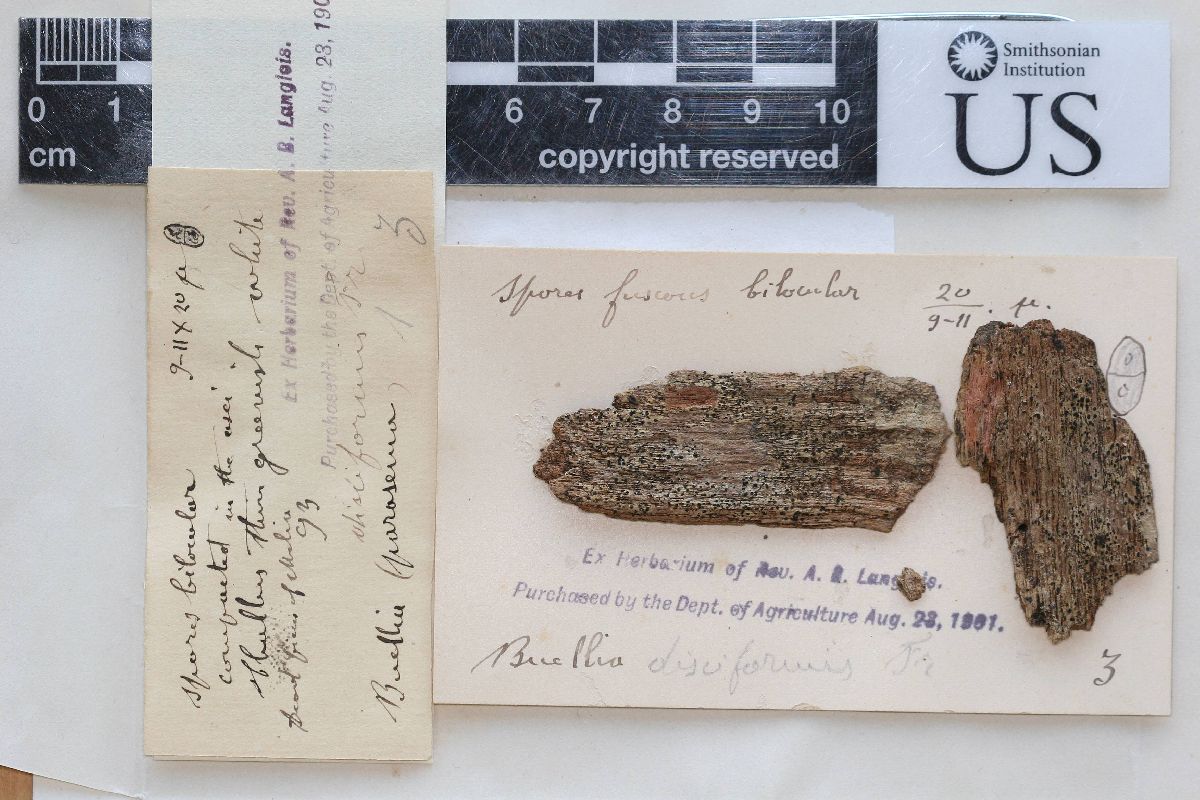 0 1 6 7 8 9 10
cm
copyright reserved
Smithsonian
Institution
US
spores bilocular 9-11 X 20 µ
compacted in the asci
thallus thin greenish white
93
Buellia (parasema)
disciformis Fr
3
Ex Herbarium of Rev. A. B. Langlois.
Purchased by the Dept. of Agriculture Aug. 23, 190
spores fuscous bilocular 20
9-11 . µ.
Ex Herbarium of Rev. A. B. Langlois.
Purchased by the Dept. of Agriculture Aug. 23, 1901.
Buellia disciformis Fr
3